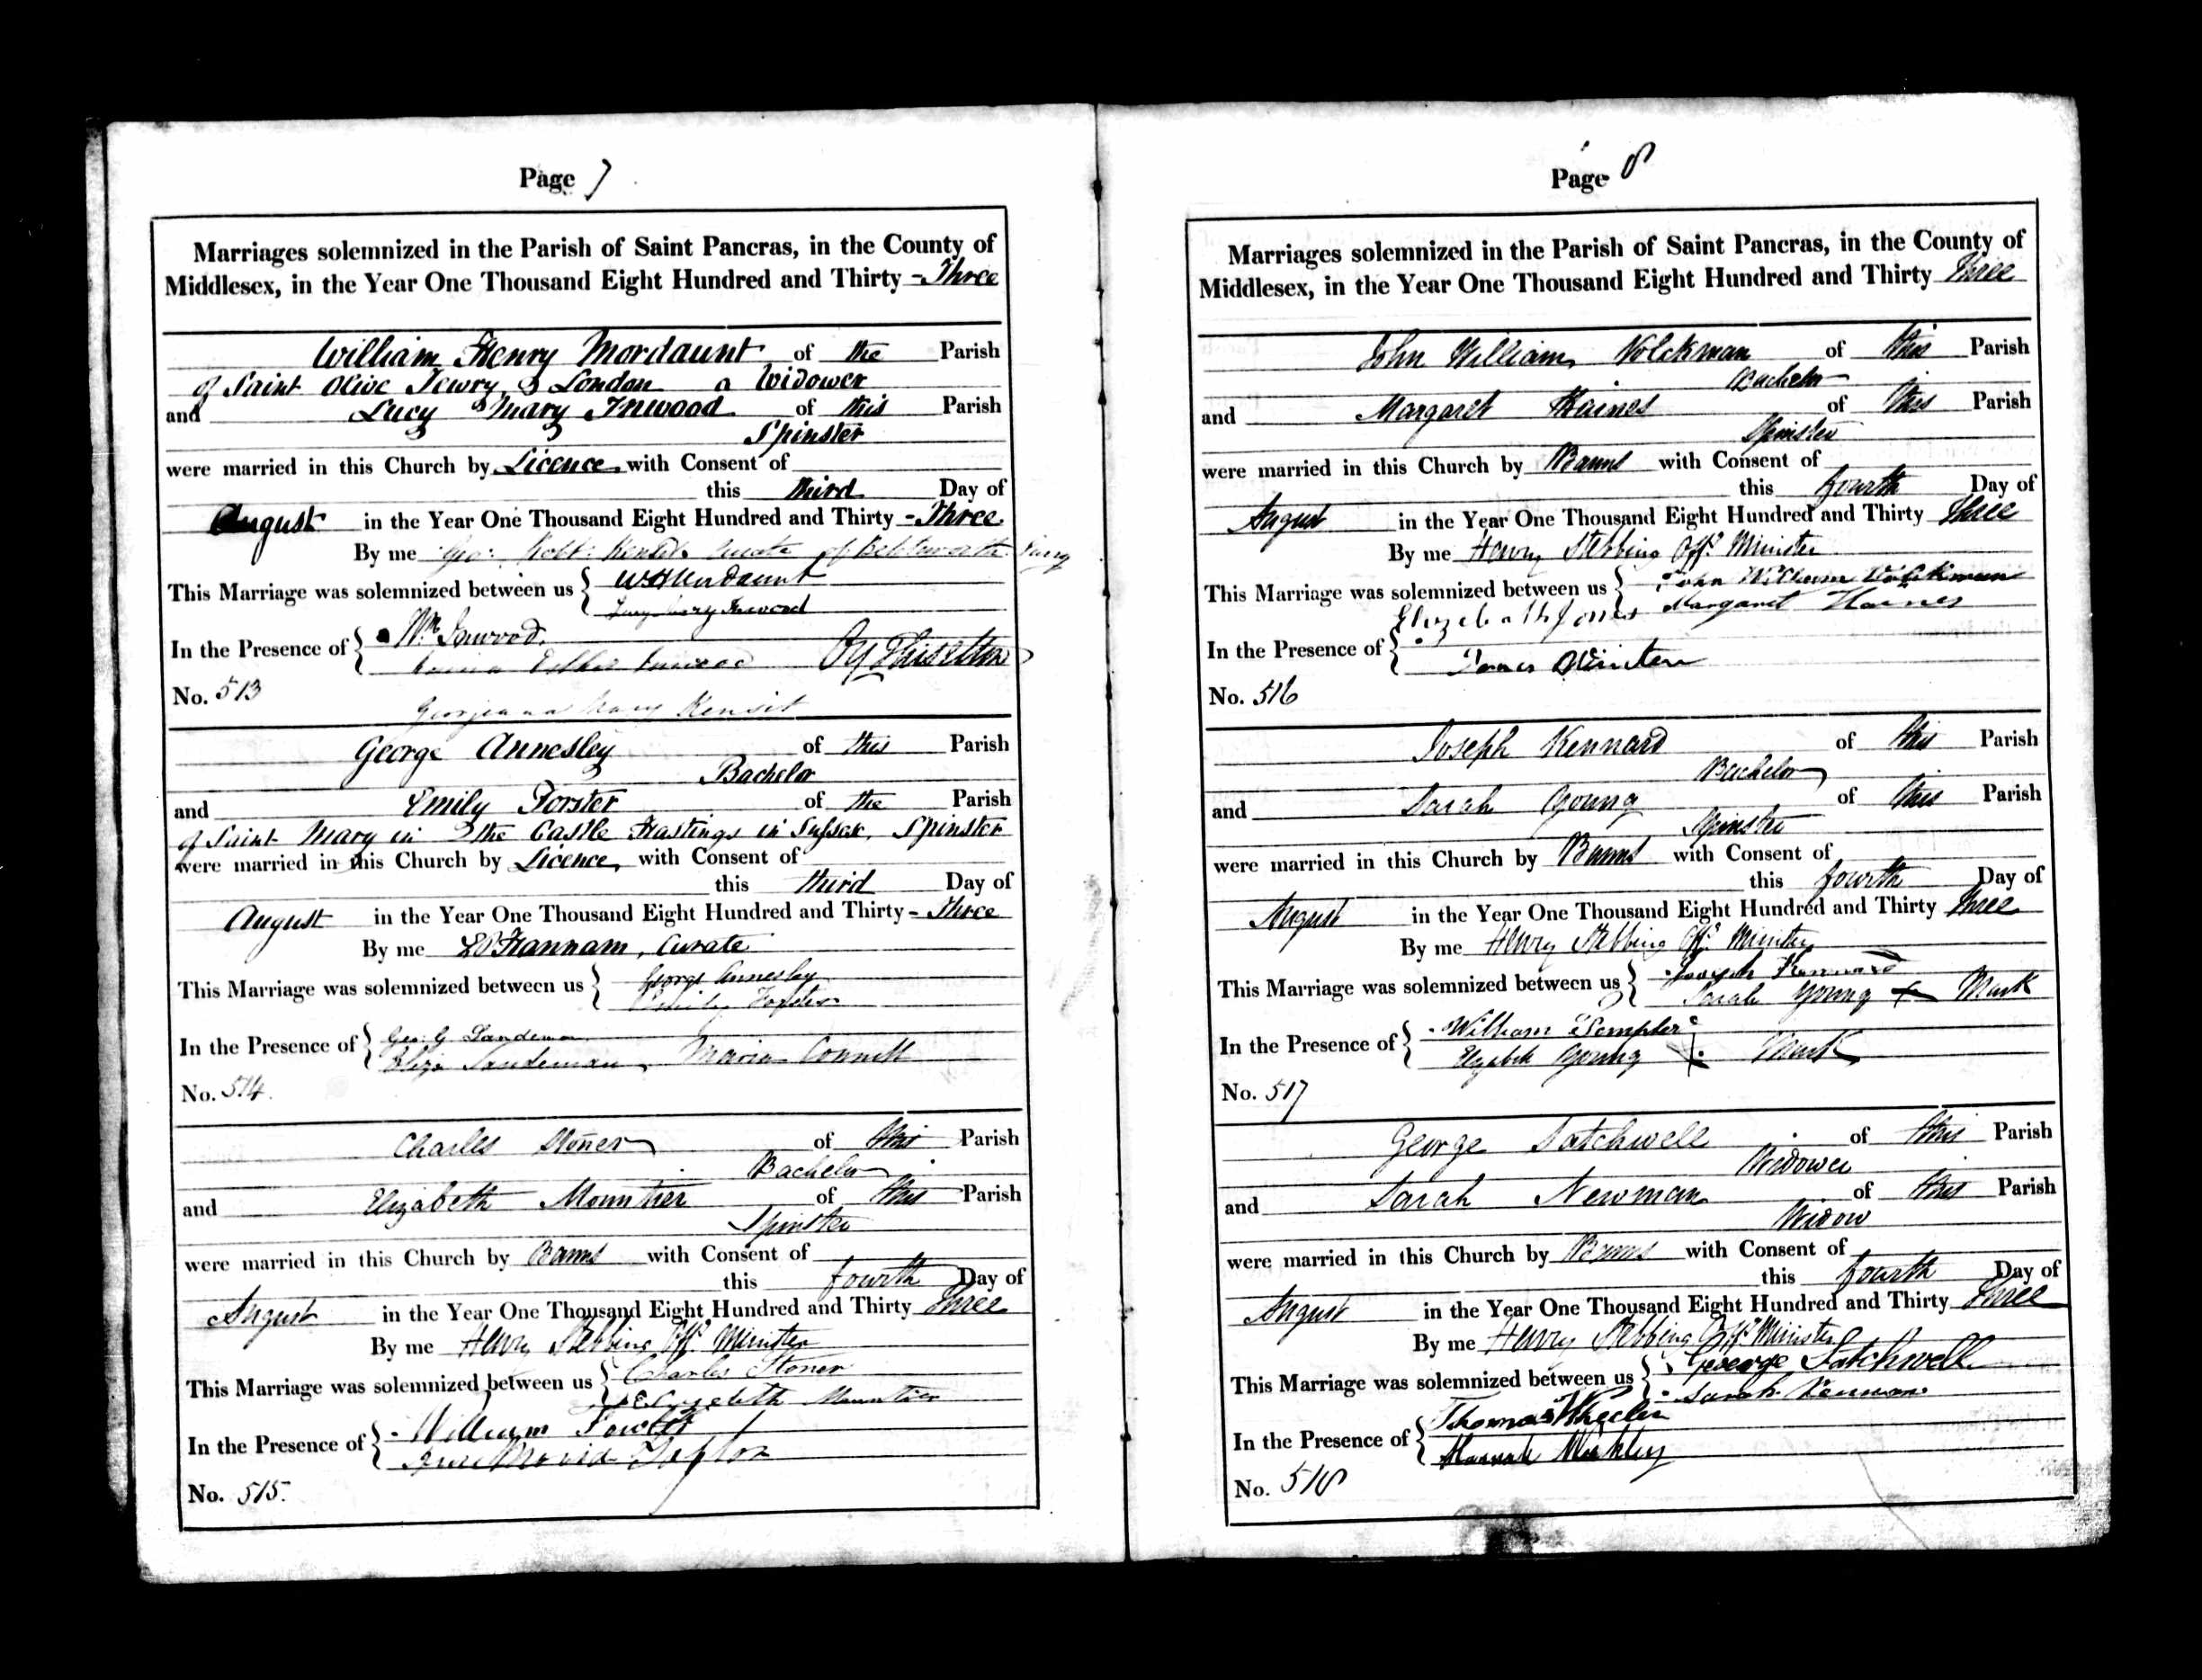 Page 7
Marriages solemnized in the Parish of Saint Pancras, in the County of
Middlesex, in the Year One Thousand Eight Hundred and Thirty - Three
William Henry Mordaunt of the Parish
of Saint Olive Jewry, London a Widower
and Lucy Mary Inwood of this Parish
Spinster
were married in this Church by Licence with Consent of
this third Day of
August in the Year One Thousand Eight Hundred and Thirty - Three
By me Geo: Robt: Kensit Curate of
This Marriage was solemnized between us { W H Mordaunt
Lucy Mary Inwood
In the Presence of { Wm Inwood.
Esther Inwood
No. 513
Georgeana Mary Kensit
George Annesley of this Parish
Bachelor
and Emily Forster of the Parish
of Saint Mary in the Castle Hastings in Sussex, Spinster
were married in this Church by Licence, with Consent of
this third Day of
August in the Year One Thousand Eight Hundred and Thirty - Three
By me Hannam, Curate
This Marriage was solemnized between us { George Annesley
Emily Forster
In the Presence of { Geo: G Sandeman
Eliza Sandeman, Maria Connell
No. 514.
Charles Stoner of this Parish
Bachelor
and Elizabeth Mountier of this Parish
Spinster
were married in this Church by Banns with Consent of
this fourth Day of
August in the Year One Thousand Eight Hundred and Thirty Three
By me Henry Stebbing Offg Minister
This Marriage was solemnized between us { Charles Stoner
Elizabeth Mountier
In the Presence of { William Fowler
Taylor
No. 515.
Page 8
Marriages solemnized in the Parish of Saint Pancras, in the County of
Middlesex, in the Year One Thousand Eight Hundred and Thirty Three
John William Volckman of this Parish
Bachelor
and Margaret Haines of this Parish
Spinster
were married in this Church by Banns with Consent of
this fourth Day of
August in the Year One Thousand Eight Hundred and Thirty Three
By me Henry Stebbing Offg Minister
This Marriage was solemnized between us { John William Volckman
Elizabeth Jones Margaret Haines
In the Presence of {
James Winter
No. 516
Joseph Kennard of this Parish
Bachelor
and Sarah Young of this Parish
Spinster
were married in this Church by Banns with Consent of
this fourth Day of
August in the Year One Thousand Eight Hundred and Thirty Three
By me Henry Stebbing Offg Minister
This Marriage was solemnized between us { Joseph Kennard
Sarah Young + Mark
In the Presence of { William Sempler
Elizabeth Young + Mark
No. 517
George Satchwell of this Parish
Widower
and Sarah Newman of this Parish
Widow
were married in this Church by Banns with Consent of
this fourth Day of
August in the Year One Thousand Eight Hundred and Thirty Three
By me Henry Stebbing Offg Minister
This Marriage was solemnized between us { George Satchwell
Sarah Newman
In the Presence of { Thomas Wheeler
Hannah
No. 518